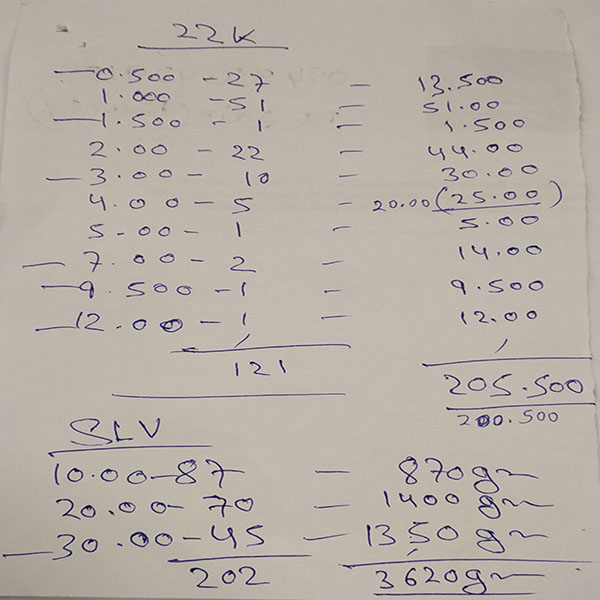 22K
—0.500 - 27 - 13.500
1.000 - 51 - 51.00
—1.500 - 1 - 1.500
2.00 - 22 - 44.00
—3.00 - 10 - 30.00
4.00 - 5 - 20.00 (25.00)
5-00 - 1 - 5.00
—7.00 - 2 14.00
—9.500 - 1 - 9.500
—12.00 - 1 - 12.00
121 205.500
200.500
SLV
10.00-87 - 870gm
20.00-70 - 1400 gm
—30.00-45 - 1350 gm
202 3620gm